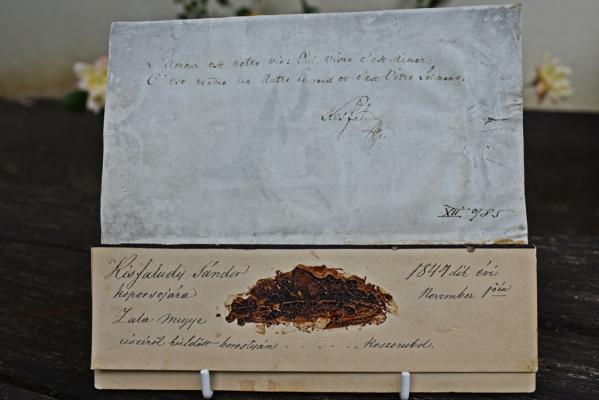 L'amour est notre vie: Oui, vivre c'est aimer,
C'est rendre un autre heureux et c'est l'être soi-même.
Kisfaludy
XII. 985
Kisfaludy Sándor 1844dik évi
koporsojára November 1jén
Zala megye
részéről küldött borostyán . . . . . . . Koszorubol.